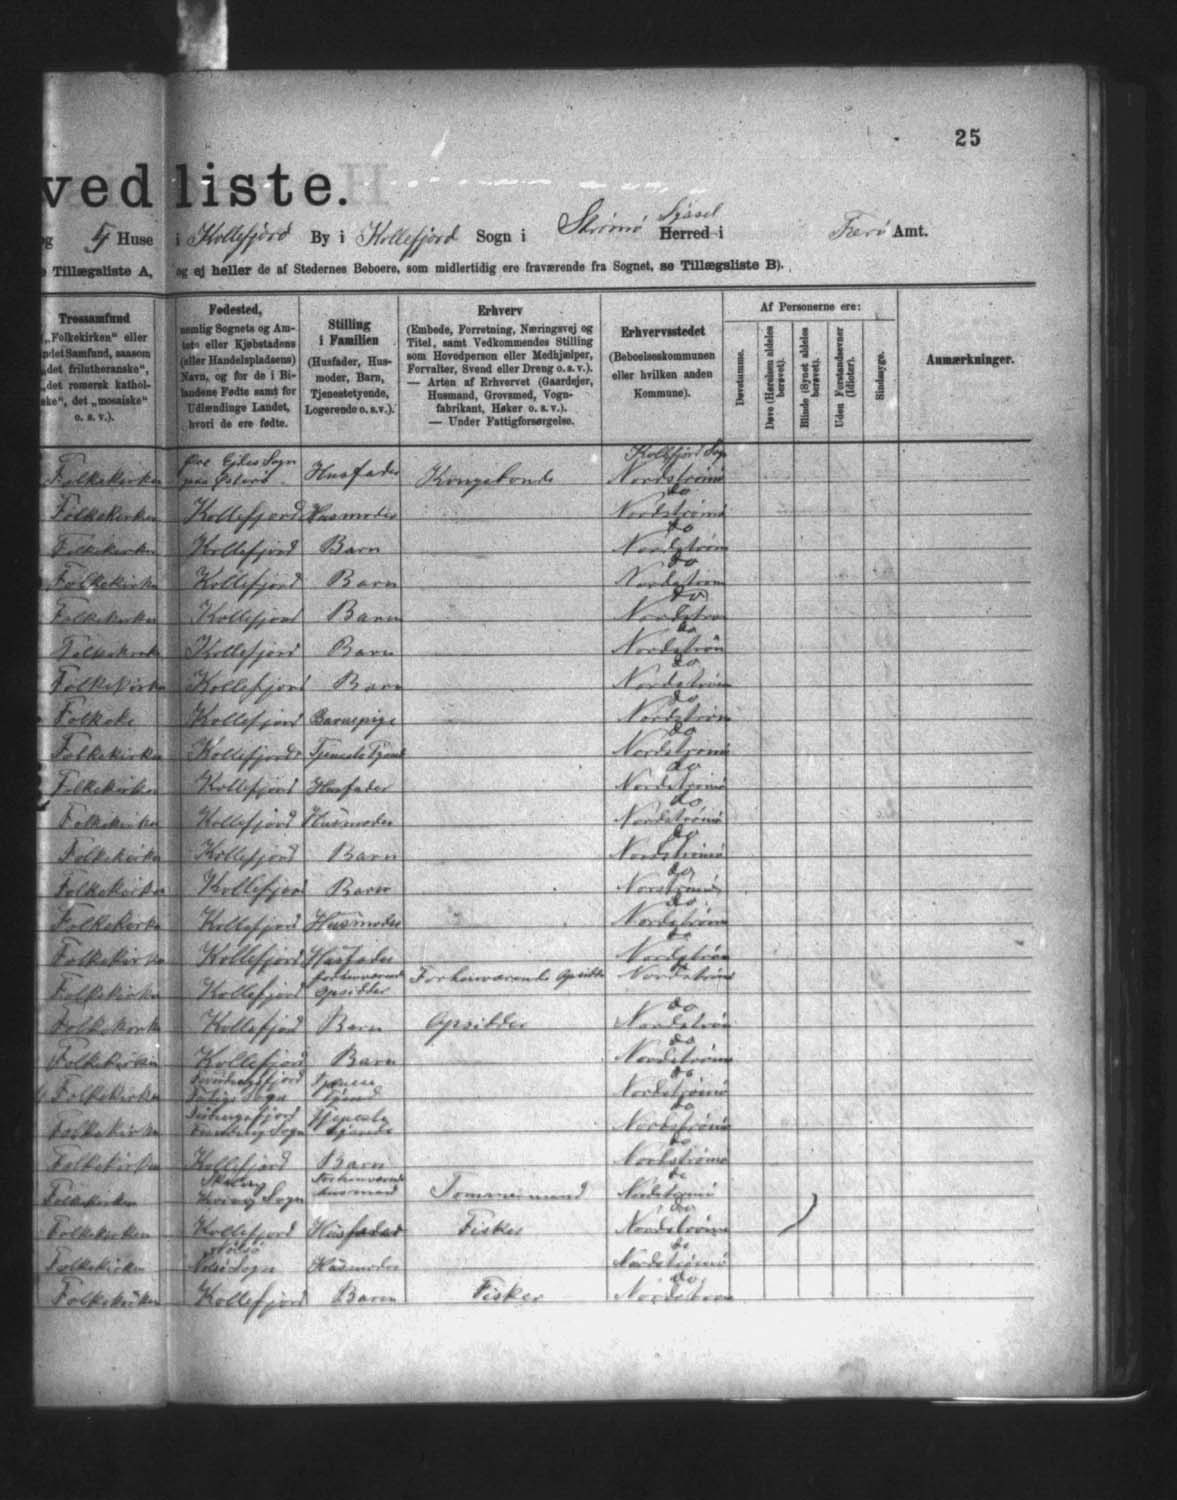 25
ved liste.
og 4 Huse i Kollefjord By i Kollefjord Sogn i Strömö Syssel Herred i Færö Amt.
Tillægsliste A, og ej heller de af Stedernes Beboere, som midlertidig ere fraværende fra Sognet, se Tillægsliste B).
Trossamfund
(„Folkekirken“ eller
andet Samfund, saasom
„det frilutheranske“,
„det romersk kathol-
ske“, det „mosaiske“
o. s. v.).
Fødested,
nemlig Sognets og Am-
tets eller Kjøbstadens
(eller Handelspladsens)
Navn, og for de i Bi-
landene Fødte samt for
Udlændinge Landet,
hvori de ere fødte.
Stilling
i Familien
(Husfader, Hus-
moder, Barn,
Tjenestetyende,
Logerende o. s. v.).
Erhverv
(Embede, Forretning, Næringsvej og
Titel, samt Vedkommendes Stilling
som Hovedperson eller Medhjælper,
Forvalter, Svend eller Dreng o. s. v.).
— Arten af Erhvervet (Gaardejer,
Husmand, Grovsmed, Vogn-
fabrikant, Høker o. s. v.).
— Under Fattigforsørgelse.
Erhvervsstedet
(Beboelseskommunen
eller hvilken anden
Kommune).
Af Personerne ere:
Døvstumme.
Døve (Hørelsen aldeles berøvet).
Blinde (Synet aldeles berøvet).
Uden Forstandsevner (Idioter).
Sindssyge.
Anmærkninger.
Folkekirken Sogn paa Österö Husfader Kongebonde Kollefjord Sogn Nordströmö
Folkekirken Kollefjord Husmoder do Nordströmö
Folkekirken Kollefjord Barn do Nordström
Folkekirken Kollefjord Barn do Nordström
Folkekirken Kollefjord Barn do Nordström
Folkekirken Kollefjord Barn do Nordström
Folkekirken Kollefjord Barn do Nordström
Folkeke Kollefjord Barnepige do Nordström
Folkekirken Kollefjord do Nordströmö
Folkekirken Kollefjord Husfader do Nordströmö
Folkekirken Kollefjord Husmoder do Nordströmö
Folkekirken Kollefjord Barn do Nordströmö
Folkekirken Kollefjord Barn do Norströmö
Folkekirken Kollefjord Husmoder do Nordströmö
Folkekirken Kollefjord Husfader do Nordström
Folkekirken Kollefjord forhenværende Opsidder Forhenværende Opsidder do Nordströmö
Folkekirken Kollefjord Barn Opsidder do Nordström
Folkekirken Kollefjord Barn do Nordströmö
Folkekirken Sogn do Nordströmö
Folkekirken Sogn Tjeneste tjende do Nordströmö
Folkekirken Kollefjord Barn do Nordströmö
Folkekirken Sogn Forhenværende Husmand do Nordströmö
Folkekirken Kollefjord Husfader Fisker do Nordströmö
Folkekirken Nolsö Nolsö Sogn Husmoder do Nordströmö
Folkekirken Kollefjord Barn Fisker do Nordström